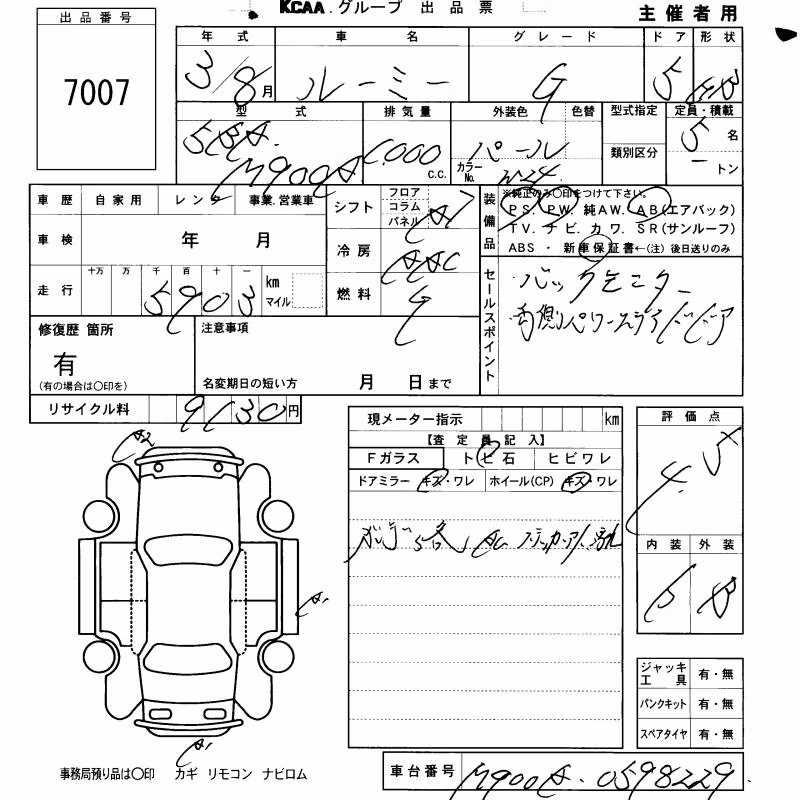 KCAA.グループ 出品票
主催者用
出品番号
7007
年式 車名 グレード ドア 形状
3/8月 ルーミー G 5 HB
型式 排気量 外装色 色替 型式指定 定員・積載
5BA M900A 1000 C.C. パール カラーNo. W24 類別区分 5名
ートン
車歴 自家用 レンタ 事業.営業車
車検 年 月
走行 十万 万 千 百 十 一 km マイル
5903
シフト フロア コラム パネル AT
冷房 AAC
燃料 G
装備品
※純正のみ〇印をつけて下さい。
PS. PW. 純AW. AB(エアバック)
TV. ナビ. カワ. SR(サンルーフ)
ABS ・ 新車保証書←(注) 後日送りのみ
セールスポイント
バックモニター
両側パワースライドドア
修復歴 箇所
有
(有の場合は〇印を)
注意事項
名変期日の短い方 月 日まで
リサイクル料 9130円
現メーター指示 km
【査定員記入】
Fガラス トビ石 ヒビワレ
ドアミラー キズ・ワレ ホイール(CP) キズ・ワレ
評価点
4.5
内装 外装
B B
A2
A1
A1
ジャッキ工具 有・無
パンクキット 有・無
スペアタイヤ 有・無
事務局預り品は〇印 カギ リモコン ナビロム
車台番号 M900A-0598229